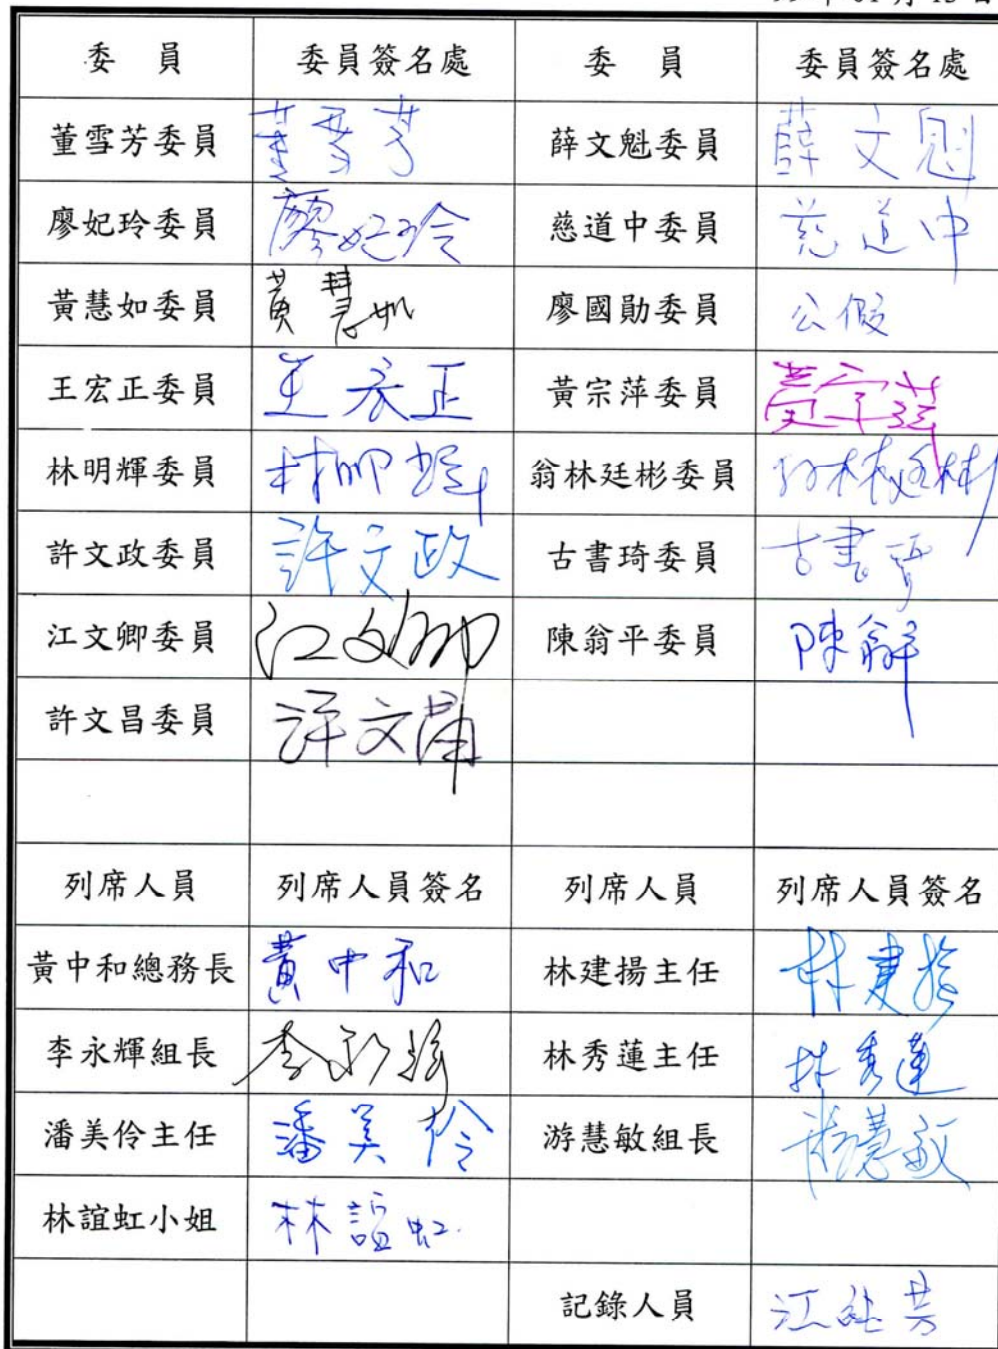 年 01 月 13 日
委 員 委員簽名處 委 員 委員簽名處
董雪芳委員 董雪芳 薛文魁委員 薛文魁
廖妃玲委員 廖妃玲 慈道中委員 慈道中
黃慧如委員 黃慧如 廖國勛委員 公假
王宏正委員 王宏正 黃宗萍委員 黃宗萍
林明輝委員 林明輝 翁林廷彬委員 翁林廷彬
許文政委員 許文政 古書琦委員 古書琦
江文卿委員 江文卿 陳翁平委員 陳翁平
許文昌委員 許文
列席人員 列席人員簽名 列席人員 列席人員簽名
黃中和總務長 黃中和 林建揚主任 林建揚
李永輝組長 李永輝 林秀蓮主任 林秀蓮
潘美伶主任 潘美伶 游慧敏組長 游慧敏
林誼虹小姐 林誼虹
記錄人員 江 芳